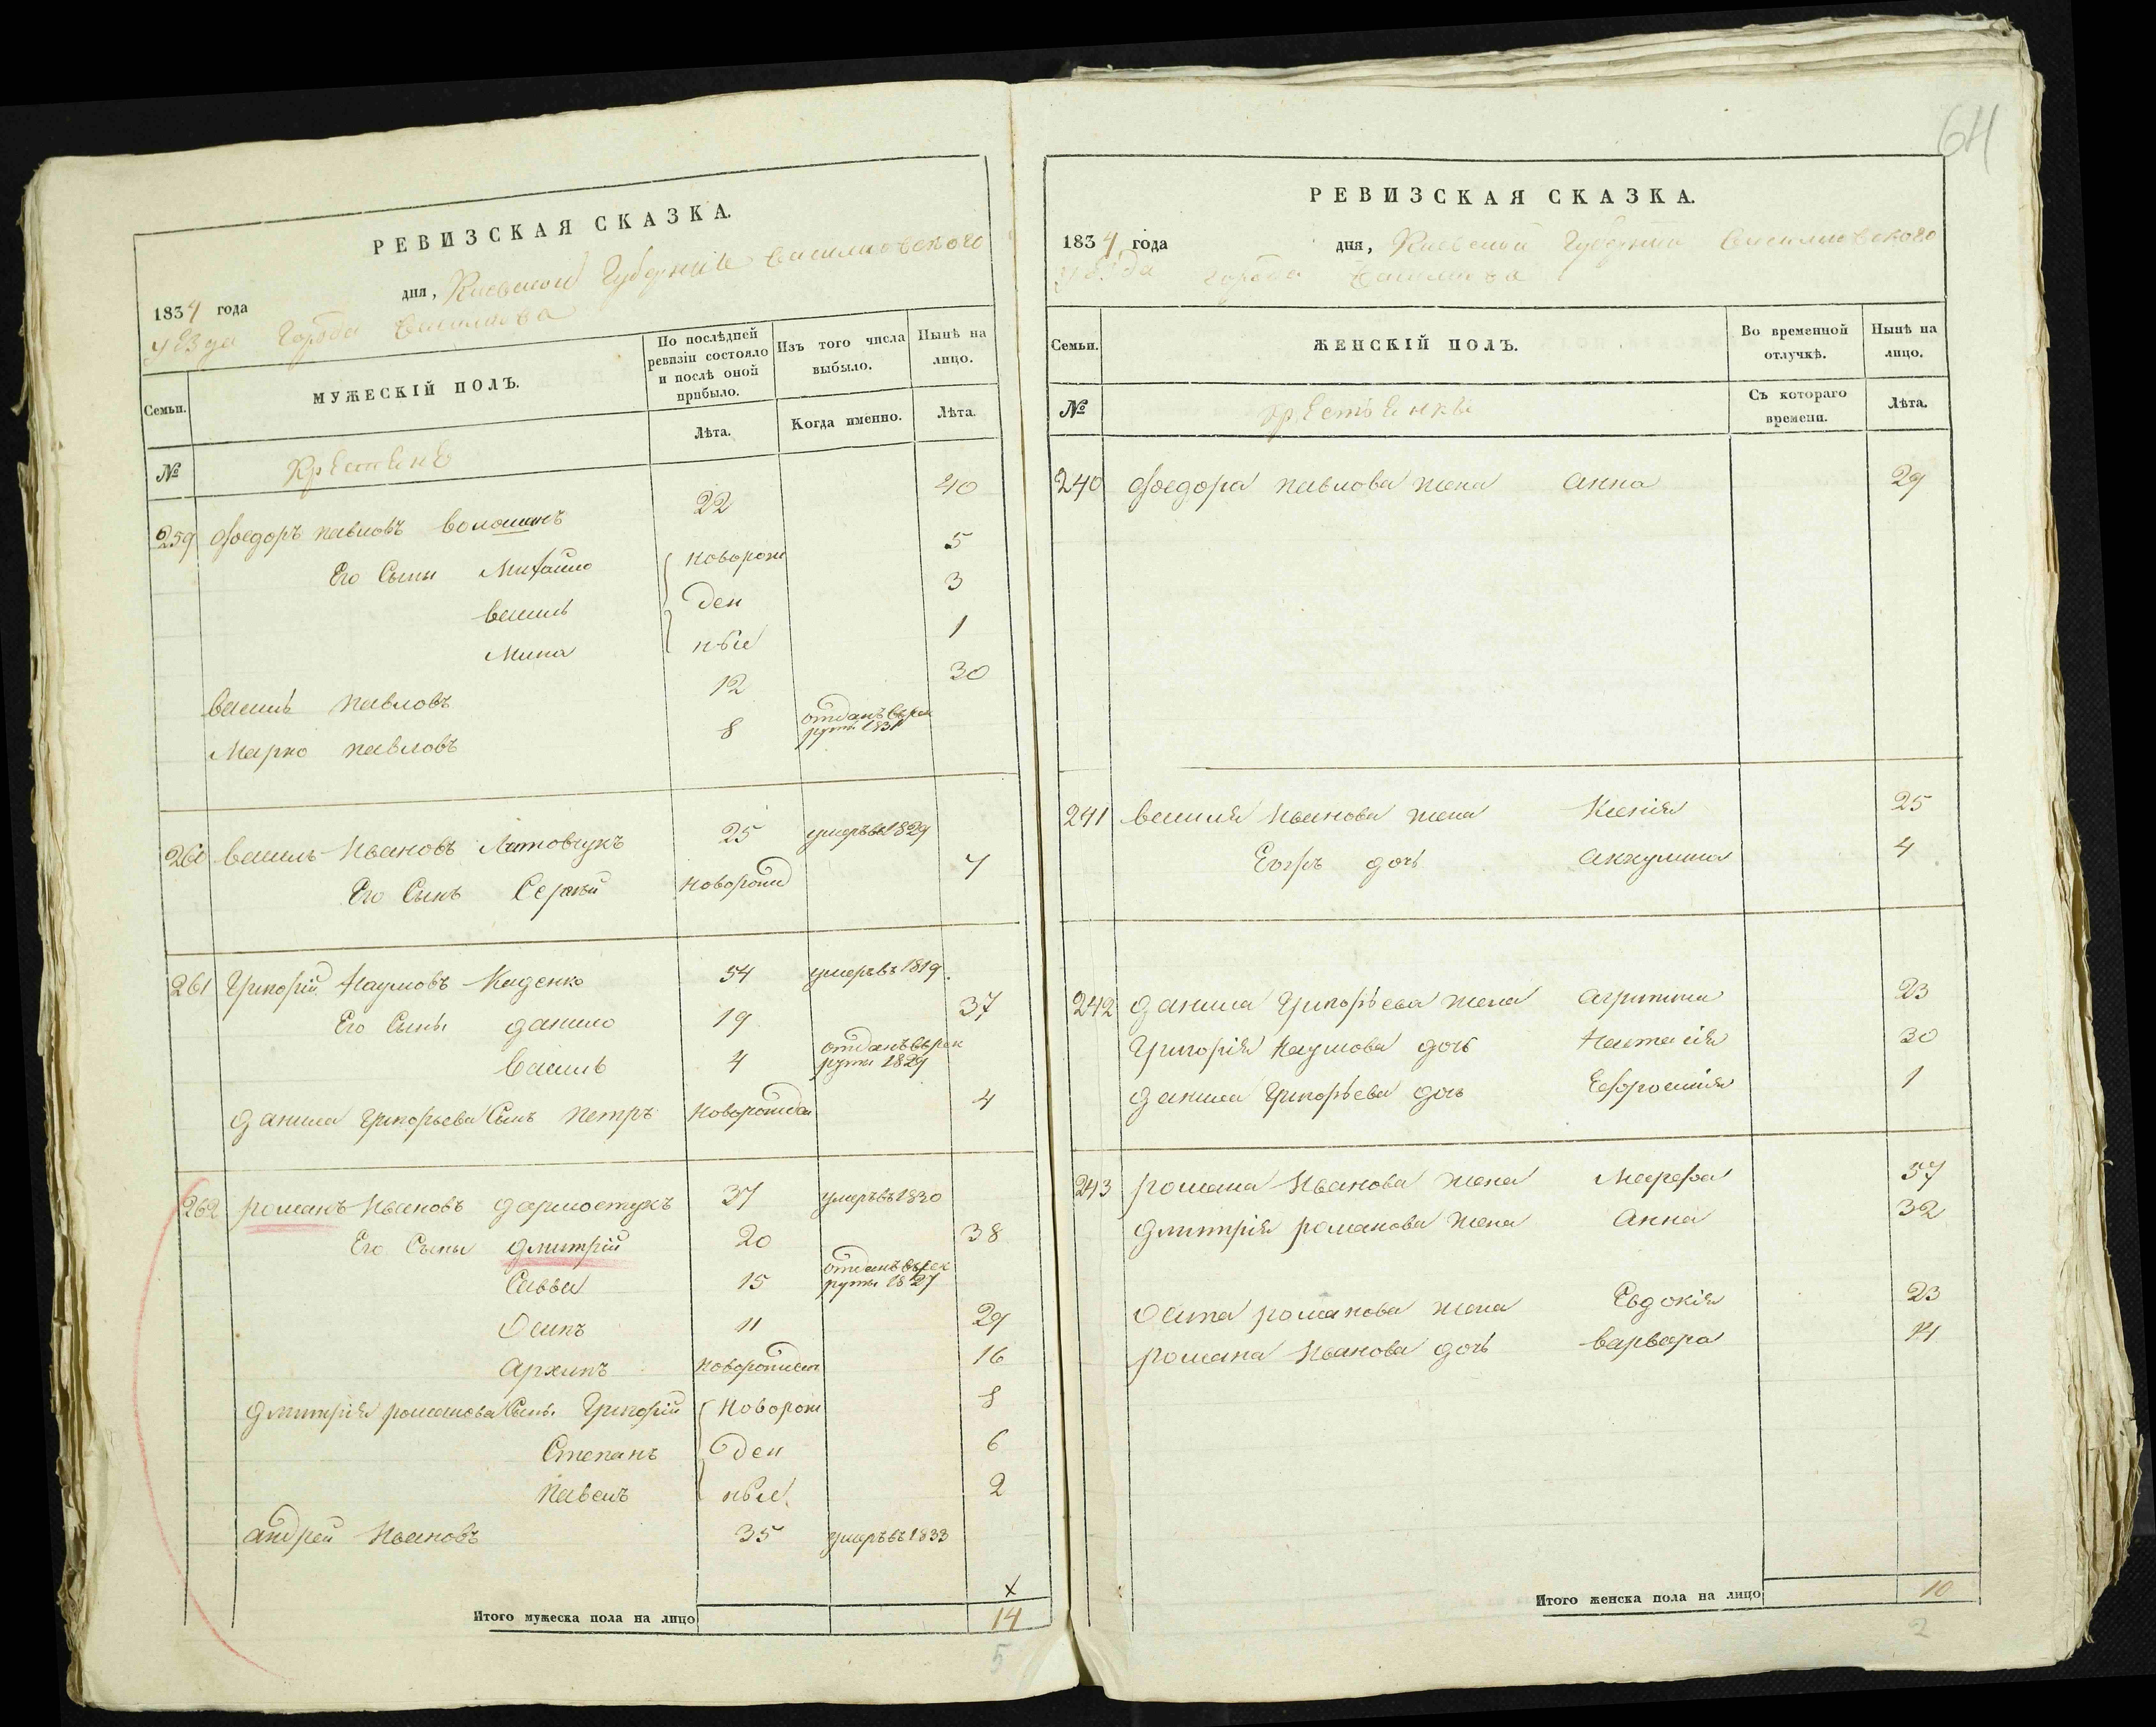 РЕВИЗСКАЯ СКАЗКА.
1834 года дня, Киевской Губернии Василковского
уѣзда Города Василкова
Семьи.
МУЖЕСКІЙ ПОЛЪ.
По послѣдней ревизіи состояло и послѣ оной прибыло.
Изъ того числа выбыло.
Нынѣ на лицо.
№
Лѣта.
Когда именно.
Лѣта.
259 Федоръ павловъ волошинъ 22 40
Его Сыны Михайло новорож 5
василь ден 3
Мина ные 1
василь павловъ 12 30
Марко павловъ 8 отданъ въ рек
руты 1831
260 василь Ивановъ Литовчукъ 25 умеръ въ 1829
Его Сынъ Сергѣй новорожд 7
261 Григорій Наумовъ 54 умеръ въ 1819.
Его Сыны данило 19 37
василь 4 отданъ въ рек
руты 1829
данила Григорьева Сынъ петръ новорожден 4
262 романъ Ивановъ дармостукъ 37 умеръ въ 1830
Его Сыны дмитрій 20 38
Савва 15 отданъ въ рек
руты 1827
Осипъ 11 29
архипъ новорожден 16
дмитрія романова Сын. Григорій новорож 8
Степанъ ден 6
павелъ ные 2
андрей Ивановъ 35 умеръ въ 1833
х
Итого мужеска пола на лицо 14
5
64
РЕВИЗСКАЯ СКАЗКА.
1834 года дня, Киевской Губернии Василковского
уѣзда города Василкова
Семьи.
ЖЕНСКІЙ ПОЛЪ.
Во временной отлучкѣ.
Нынѣ на лицо.
№
Съ котораго времени.
Лѣта.
240 Федора павлова жена анна 29
241 василія Иванова жена Ксенія 25
дочь аккулина 4
242 данила Григорьева жена агрипина 23
Григорія Наумова дочь Настасія 30
данила Григорьева дочь Ефросинія 1
243 романа Иванова жена Марефа 57
дмитрія романова жена анна 32
Осипа романова жена Евдокія 23
романа Иванова дочь варвара 14
Итого женска пола на лицо 10
2